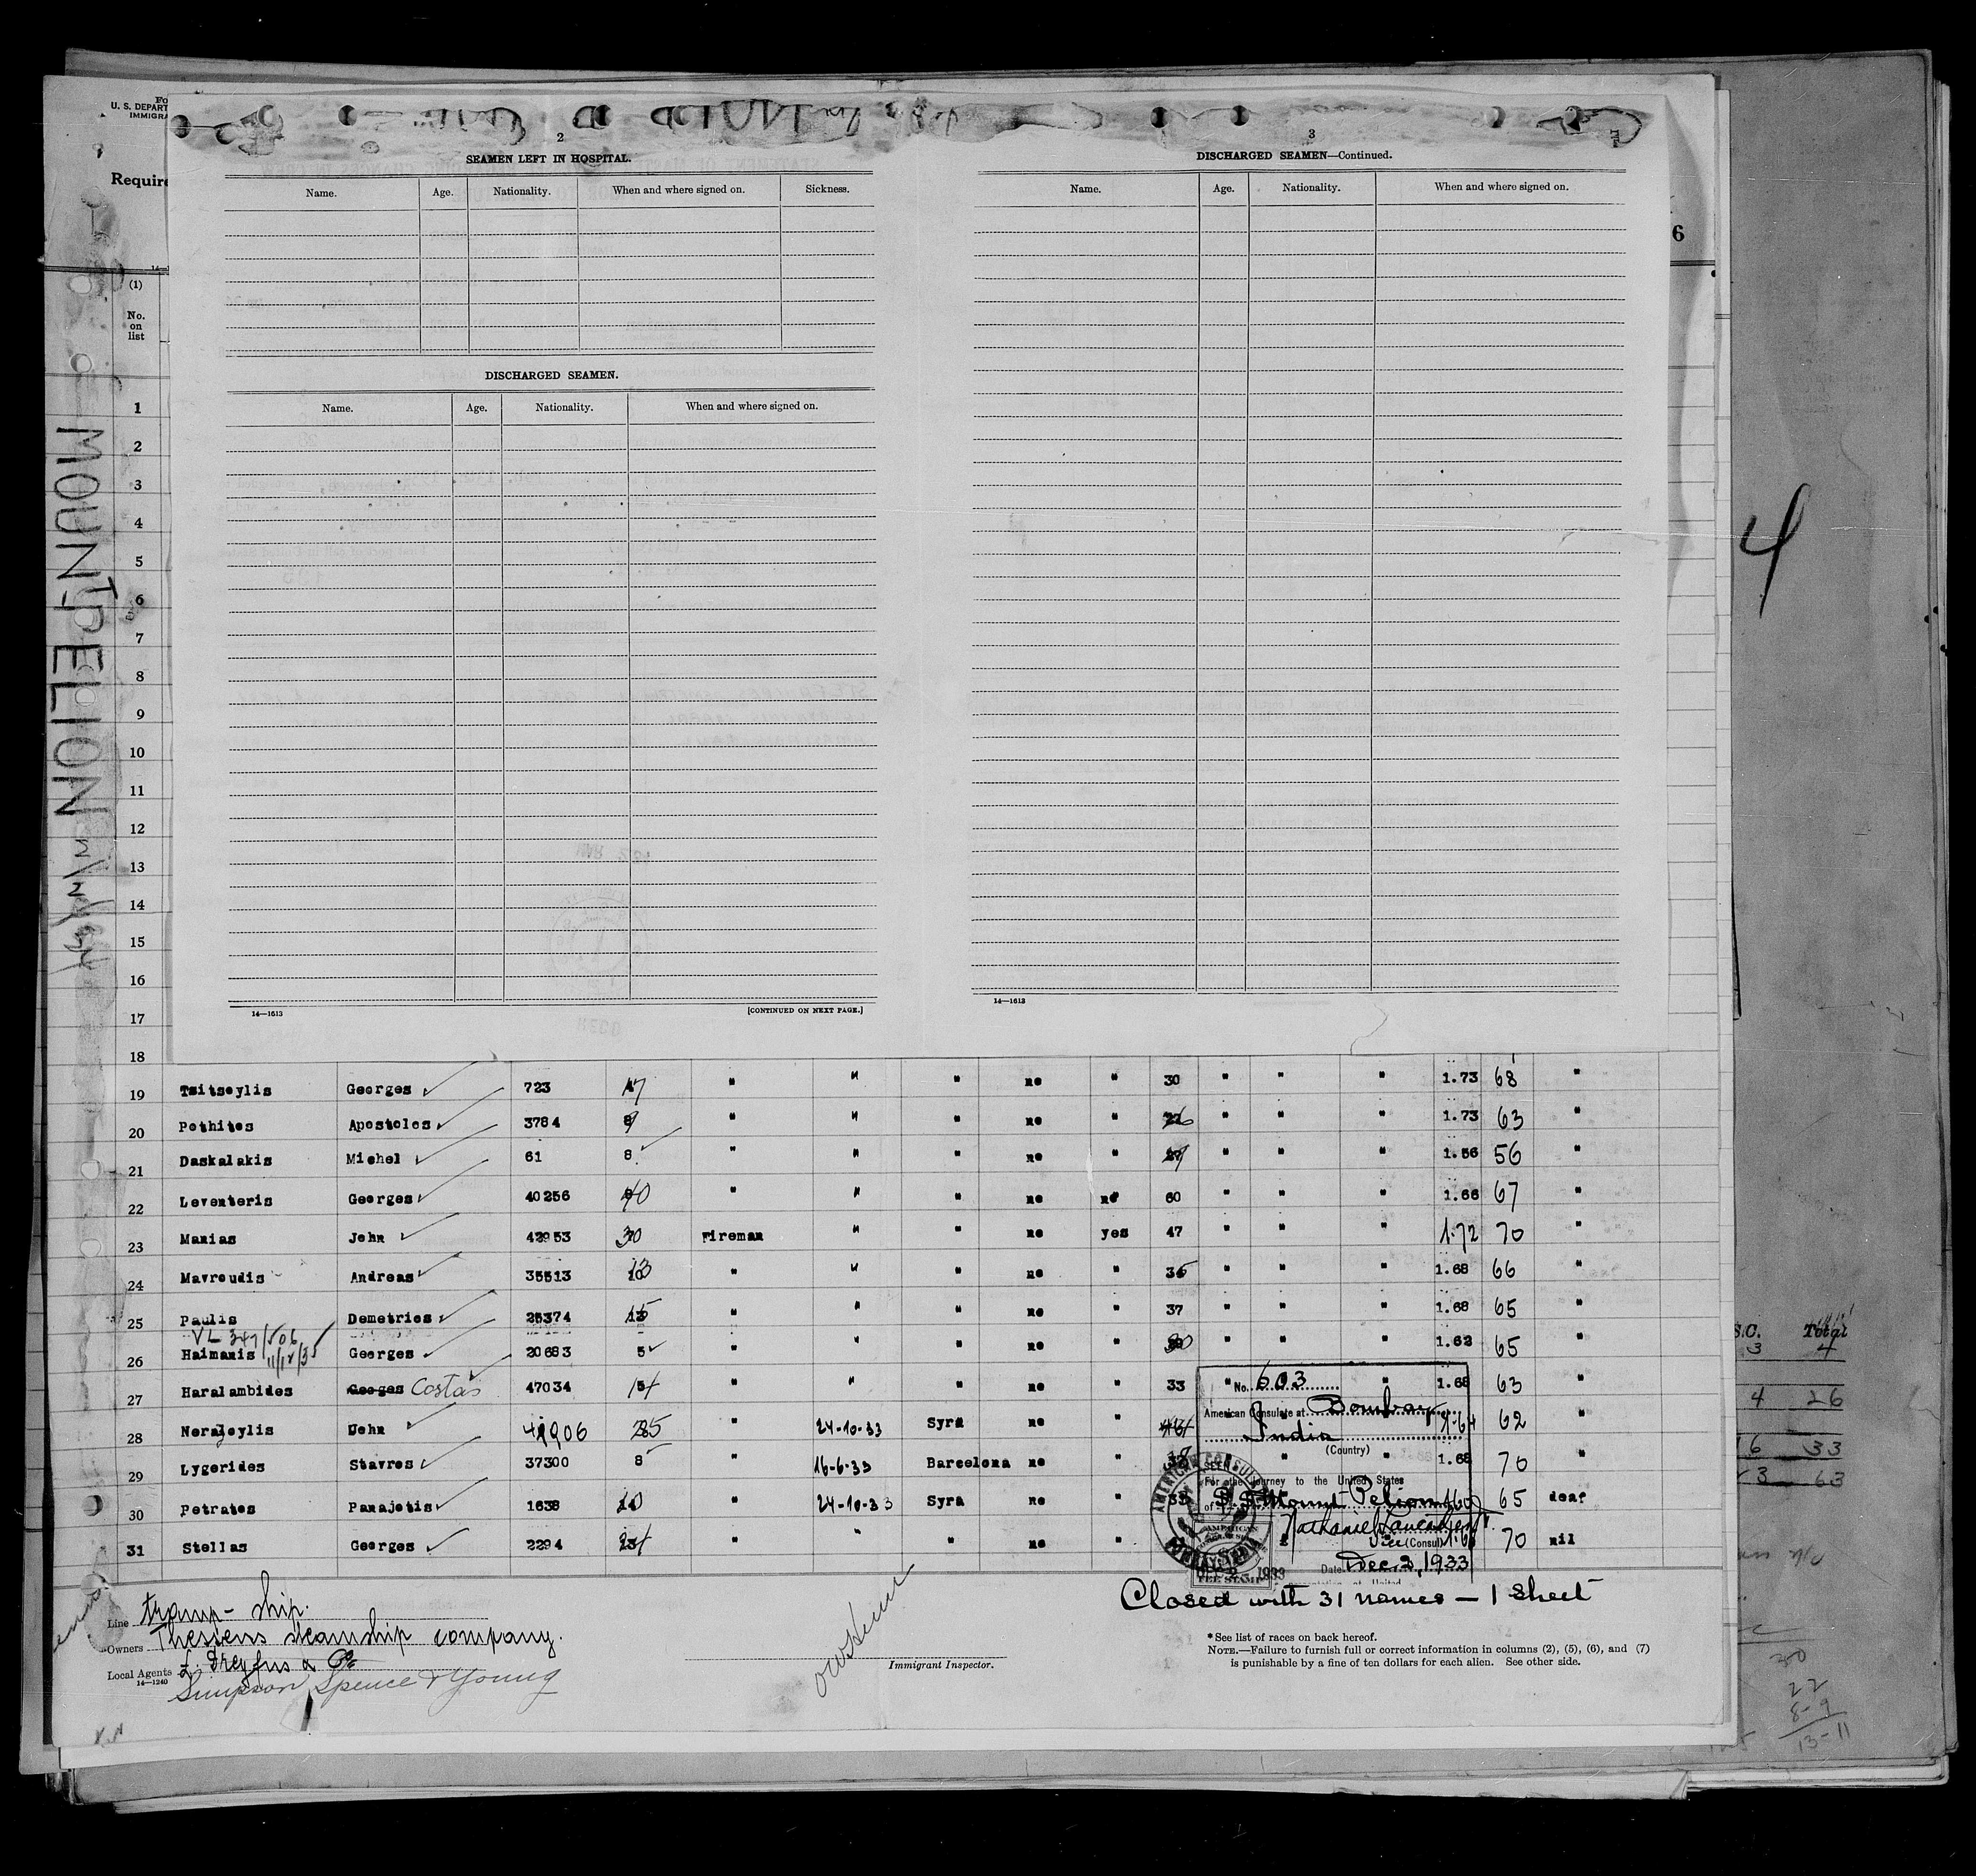 Fo
U. S. DEPART
IMMIGRA
Require
2
SEAMEN LEFT IN HOSPITAL.
Name. Age. Nationality. When and where signed on. Sickness.
DISCHARGED SEAMEN.
Name. Age. Nationality. When and where signed on.
14—1613 [CONTINUED ON NEXT PAGE.]
3
DISCHARGED SEAMEN—Continued.
Name. Age. Nationality. When and where signed on.
14—1613
6
4
MOUNT PELION
(1)
No.
on
list
1
2
3
4
5
6
7
8
9
10
11
12
13
14
15
16
17
18
19 Tsitseylis Georges 723 17 " " " no " 30 " " " 1.73 68 "
20 Pothitos Apostolos 3784 9 " " " no " 26 " " " 1.73 63 "
21 Daskalakis Michel 61 8 " " " no " " " " 1.56 56 "
22 Leventeris Georges 40256 40 " " " no no 60 " " " 1.66 67 "
23 Manias John 42953 30 Fireman " " no yes 47 " " " 1.72 70 "
24 Mavroudis Andreas 35513 13 " " " no " 35 " " " 1.68 66 "
25 Paulis Demetrios 25374 15 " " " no " 37 " " " 1.68 65 "
VL 347/506
11/12/35
26 Haimanis Georges 20683 5 " " " no " 30 " " " 1.62 65 "
27 Haralambides Georges Costas 47034 14 " " " no " 33 " " 1.68 63 "
28 John 41906 25 " 24-10-33 Syra no " 1.64 62 "
29 Lygerides Stavros 37300 8 " 16-6-33 Barcelona no " 38 " " 1.68 70 "
30 Petrates Panajotis 1638 10 " 24-10-33 Syra no " 33 1.60 65 deaf
31 Stellas Georges 2294 24 " " " no " 70 nil
No. 603
American Consulate at Bombay
India
(Country)
SEEN
For the journey to the United States
of S.S. Mount Pelion
Nathaniel Lancaster Jr.
Vice (Consul)
Date Dec 2, 1933
AMERICAN CONSULATE
BOMBAY, INDIA
FEE STAMP
Closed with 31 names — 1 sheet
Line tramp-ship.
Owners Theseus steamship company.
Local Agents L. Dreyfus & Co
14—1240
Simpson Spence & Young
Immigrant Inspector.
*See list of races on back hereof.
NOTE.—Failure to furnish full or correct information in columns (2), (5), (6), and (7)
is punishable by a fine of ten dollars for each alien. See other side.
S.C. Total
3 4
4 26
6 33
3 63
30
22
8-9
13-11